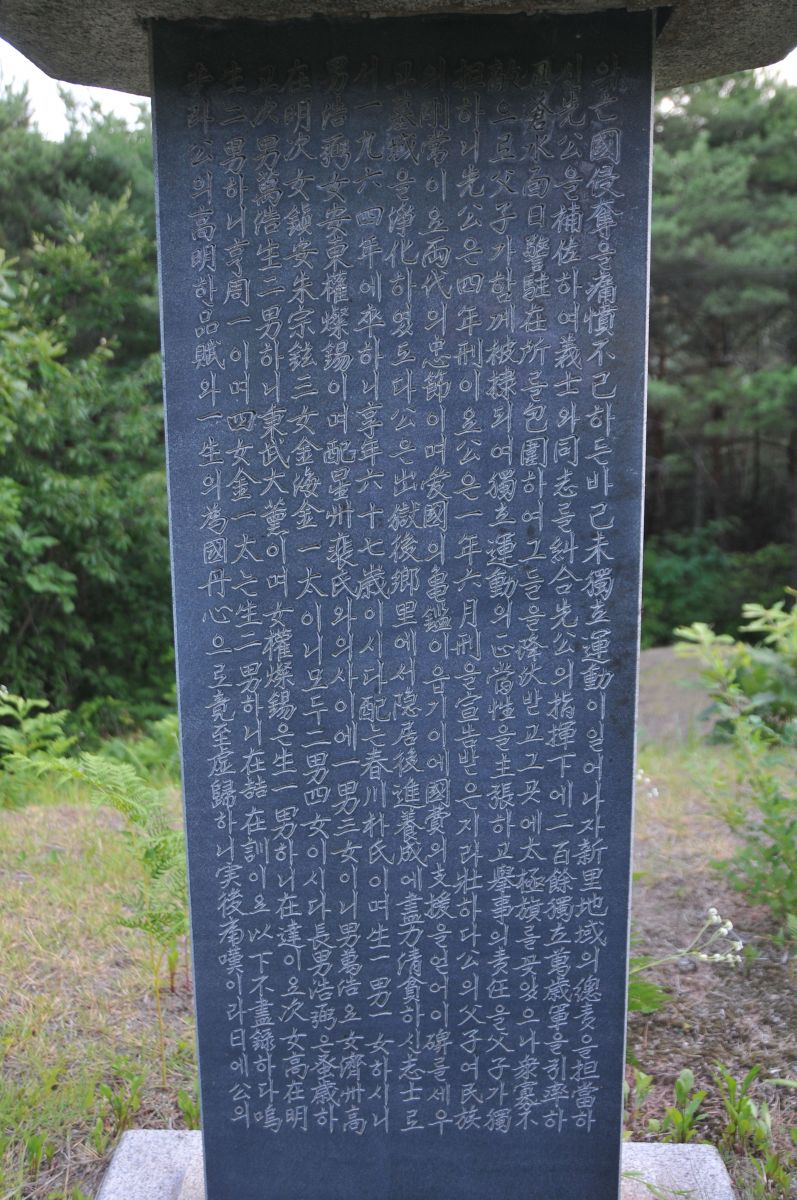 亡國侵奪을痛憤不己하든바己未獨立運動이일어나자新里地域의總責을担當하
신先公을補佐하여義士와同志를糾合先公의指揮下에二百餘獨立萬歲軍을引率하
고蒼水面日警駐在所를包圍하여그들을降伏받고그곳에太極旗를꽂았으나衆寡不
敵으로父子가함께被捷되여獨立運動의正當性을主張하고擧事의責任을父子가獨
担하니先公은四年刑이요公은一年六月刑을宣告받은지라壯하다公의父子여民族
의剛常이요両代의忠節이며愛國의龜鑑이음기이에國費의支援을얻어이碑를세우
고墓域을淨化하였도다公은出獄後鄕里에서隱居後進養成에盡力淸貧하신志士로
서一九六四年에卒하니享年六十七歲이시다配는春川朴氏이며生一男一女하시니
男浩弼女安東權燦錫이며配星州裵氏와의사이에一男三女이니男萬浩요女濟州高
在明次女鎭安朱宗鉉三女金海金一太이니모두二男四女이시다長男浩弼은蚤歲하
고次男萬浩生二男하니東武大薰이며女權燦錫은生一男하니在達이요次女高在明
生二男하니亨周一이며四女金一太는生二男하니在喆在訓이요以下不盡錄하다嗚
呼라公의高明한品賦와一生의為國丹心으로竟至虛歸하니実後痛嘆이라日에公의